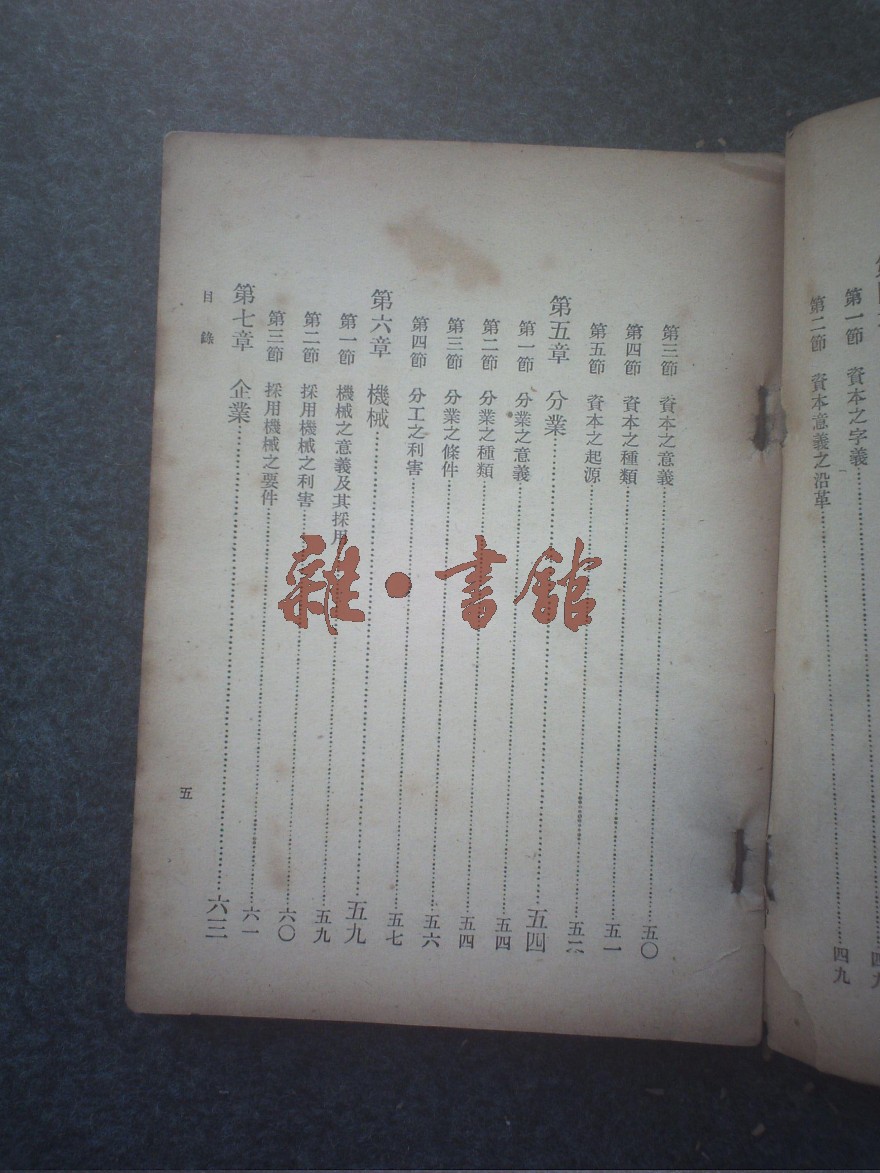 第一節 資本之字義……四九
第二節 資本意義之沿革……四九
第三節 資本之意義……五〇
第四節 資本之種類……五一
第五節 資本之起源……五
第五章 分業……五四
第一節 分業之意義……五四
第二節 分業之種類……五四
第三節 分業之條件……五六
第四節 分工之利害……五七
第六章 機械……五九
第一節 機械之意義及其採用……五九
第二節 採用機械之利害……六〇
第三節 採用機械之要件……六一
第七章 企業……六三
目錄
五
雜·書館